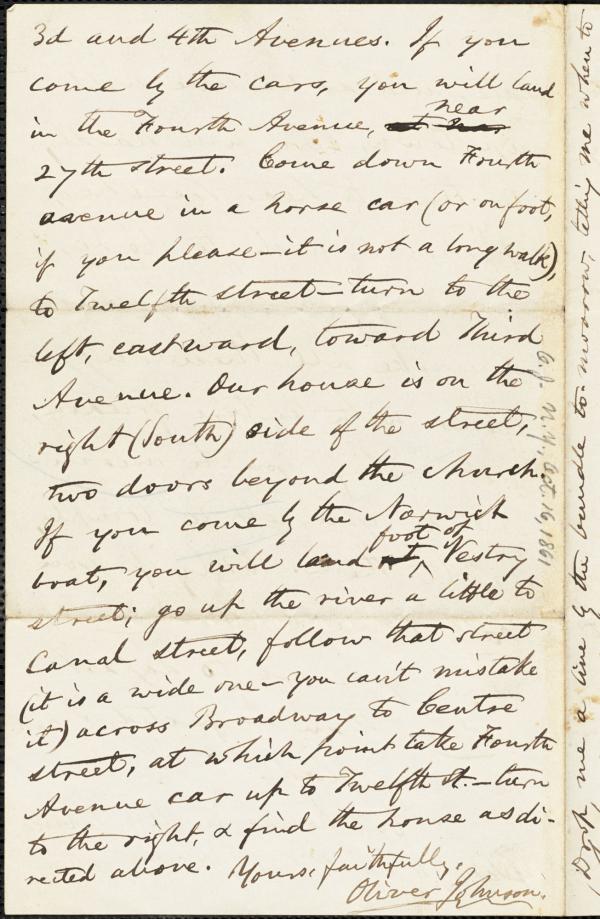 3d and 4th Avenues. If you
come by the cars, you will land
in the Fourth Avenue, near
27th street. Come down Fourth
avenue in a horse car (or on foot,
if you please—it is not a long walk),
to Twelfth street—turn to the
left, eastward, toward Third
Avenue. Our house is on the
right (South) side of the street,
two doors beyond the church.
If you come by the Norwich
boat, you will land foot of Vestry
street; go up the river a little to
Canal street, follow that street
(it is a wide one—you can't mistake
it) across Broadway to Centre
street, at which point take Fourth
Avenue car up to Twelfth st.—turn
to the right, & find the house as di-
rected above. Yours, faithfully,
Oliver Johnson.
O.J. N.Y., Oct. 16, 1861
Drop me a line by the bundle to-morrow, telling me when to